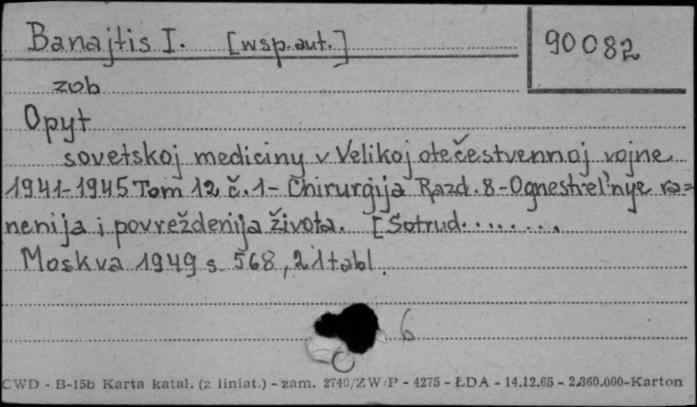 Banajtis I. [wsp. aut.]
90082
zob
Opyt
sovetskoj mediciny v Velikoj otečestvennoj vojne
1941-1945 Tom 12 č. 1 - Chirurgija Razd. 8 - Ognestrel'nye ra=
nenija i povreždenija života. [Sotrud........
Moskva 1949 s. 568, 21 tabl.
6
CWD - B-15b Karta katal. (z liniat.) - zam. 2740/ZW/P - 4275 - ŁDA - 14.12.65 - 2.360.000-Karton